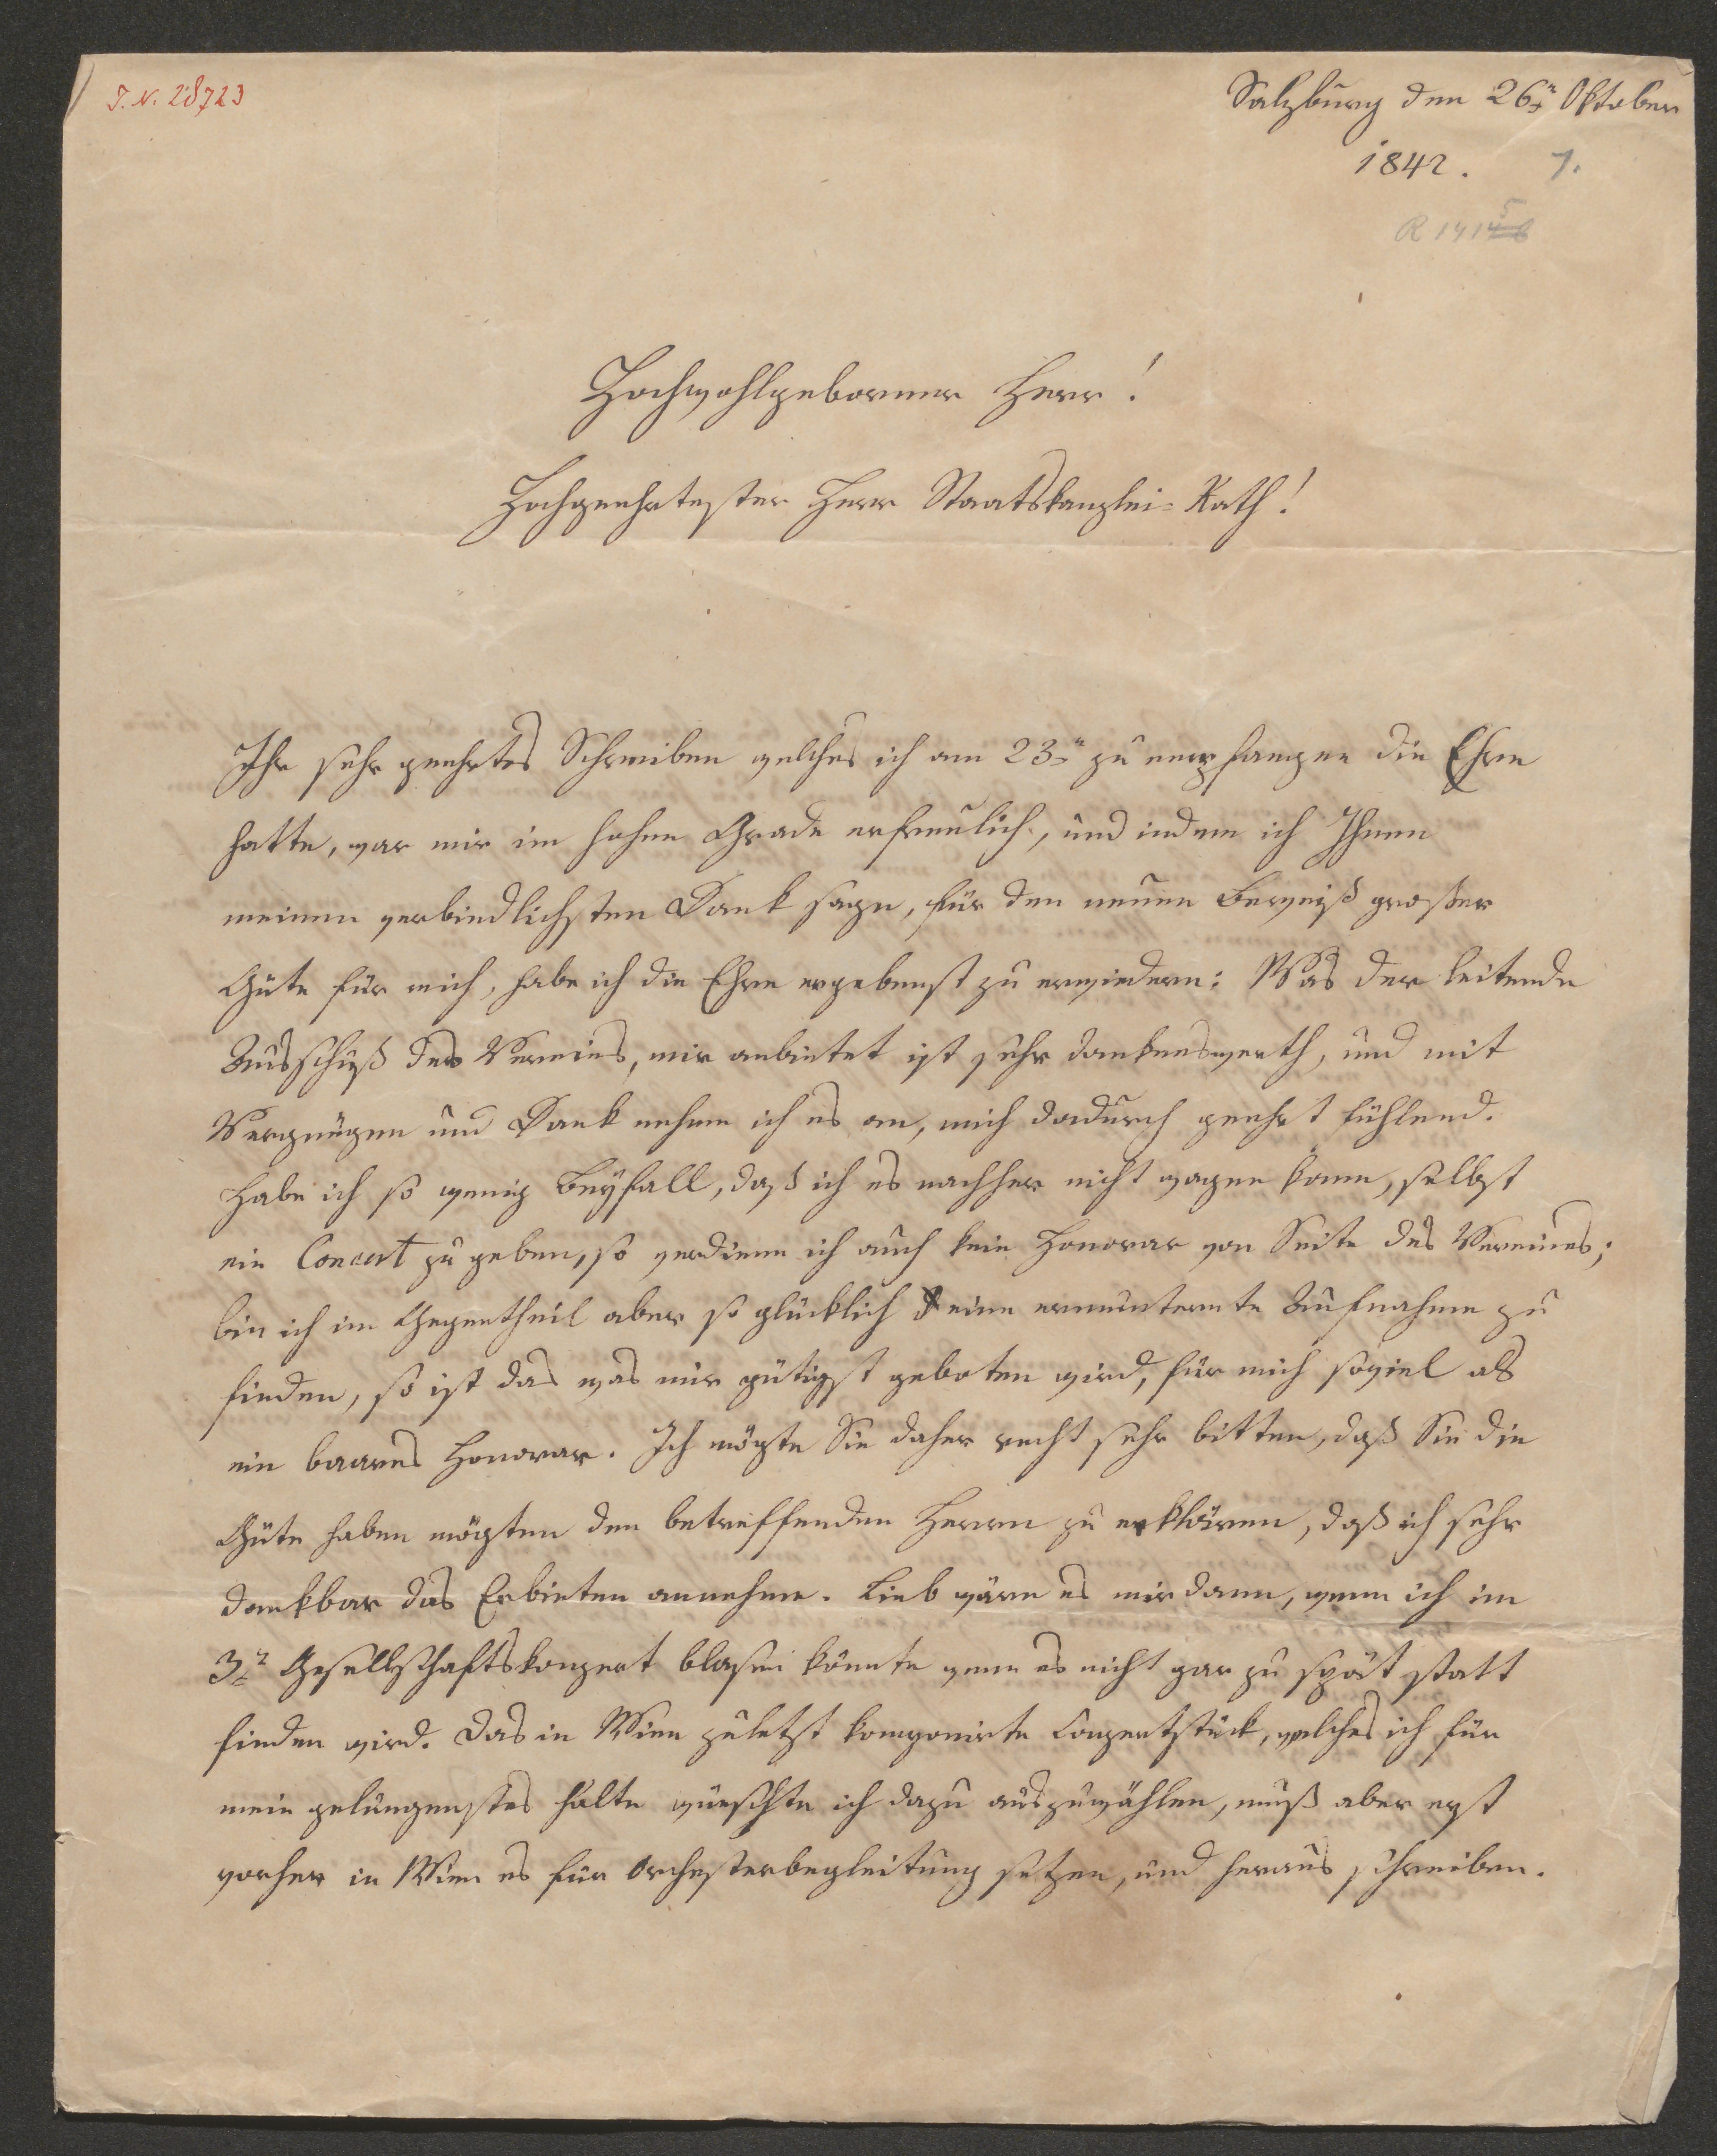 I.N. 28723
Salzburg den 26n Oktober
1842. 7.
5
R 1914
Hochwohlgeborner Herr!
Hochgeehrtester Herr Staatskanzlei=Rath!
Ihr sehr geehrtes Schreiben welches ich am 23n zu empfangen die Ehre
hatte, war mir im hohen Grade erfreulich, und indem ich Ihnen
meinen verbindlichsten Dank sage, für den neuen Beweiß großer
Güte für mich, habe ich die Ehre ergebenst zu erwiedern: Was der leitende
Ausschuß des Vereins, mir anbietet ist sehr dankenswerth, und mit
Vergnügen und Dank nehme ich es an, mich dadurch geehrt fühlend.
Habe ich so wenig Beyfall, daß ich es nachher nicht wagen kann, selbst
ein Concert zu geben, so verdiene ich auch kein Honorar von Seite des Vereines;
bin ich im Gegentheil aber so glücklich eine ermunternte Aufnahme zu
finden, so ist das was mir gütigst geboten wird, für mich soviel als
ein baares Honorar. Ich mögte Sie daher recht sehr bitten, daß Sie die
Güte haben mögten den betreffenden Herrn zu erklären, daß ich sehr
dankbar das Erbieten annehme. Lieb wäre es mir dann, wenn ich im
3t Gesellschaftskonzert blasen könnte wenn es nicht gar zu spät statt
finden wird. Das in Wien zuletzt komponirte Conzertstück, welches ich für
mein gelungenstes halte wünschte ich dazu auszuwählen, muß aber erst
vorher in Wien es für Orchesterbegleitung setzen, und heraus schreiben.